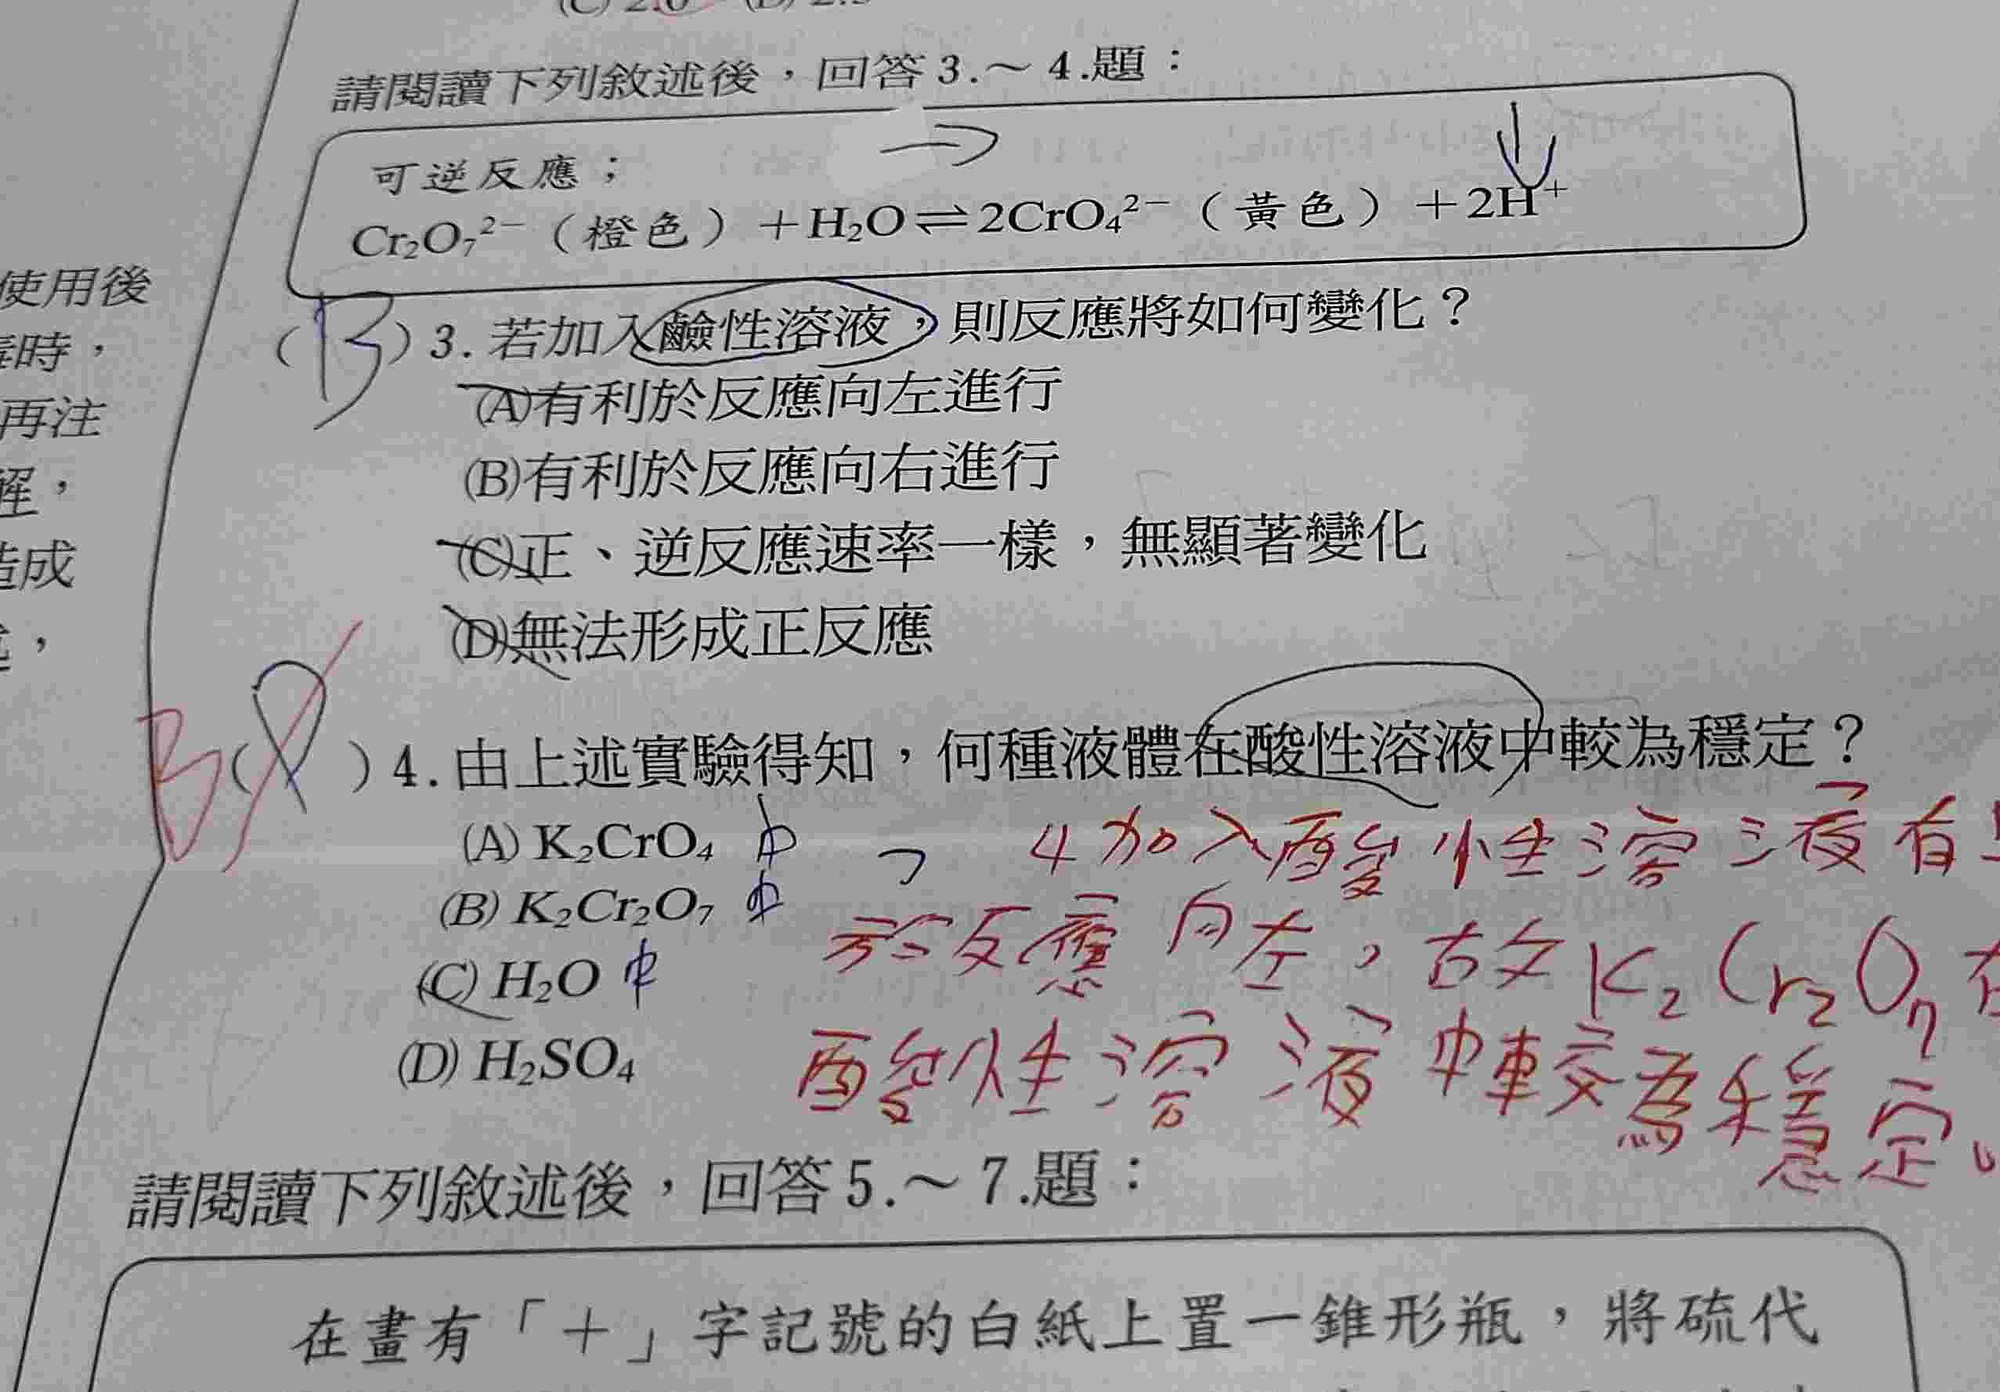 (C) 2.0
請閱讀下列敘述後，回答3.～4.題：
可逆反應；
Cr₂O₇²⁻（橙色）＋H₂O⇌2CrO₄²⁻（黃色）＋2H⁺
使用後
時，
再注
，
成
，
(B)3.若加入鹼性溶液，則反應將如何變化？
(A)有利於反應向左進行
(B)有利於反應向右進行
(C)正、逆反應速率一樣，無顯著變化
(D)無法形成正反應
B( )4.由上述實驗得知，何種液體在酸性溶液中較為穩定？
(A) K₂CrO₄ 中
(B) K₂Cr₂O₇ 中
(C) H₂O 中
(D) H₂SO₄
4加入酸性溶液有
於反應向左，故K₂Cr₂O₇在
酸性溶液中較為穩定。
請閱讀下列敘述後，回答5.～7.題：
在畫有「＋」字記號的白紙上置一錐形瓶，將硫代